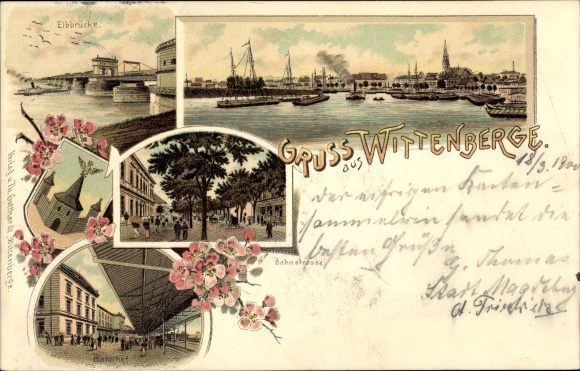 Elbbrücke.
GRUSS aus WITTENBERGE.
18/3. 1900
Der eifrigen Karten-
sammlerin sendet die
besten Grüße
G. Thomas
Stadt Magdeburg
Bahnstrasse.
Bahnhof.
Wittenberge.